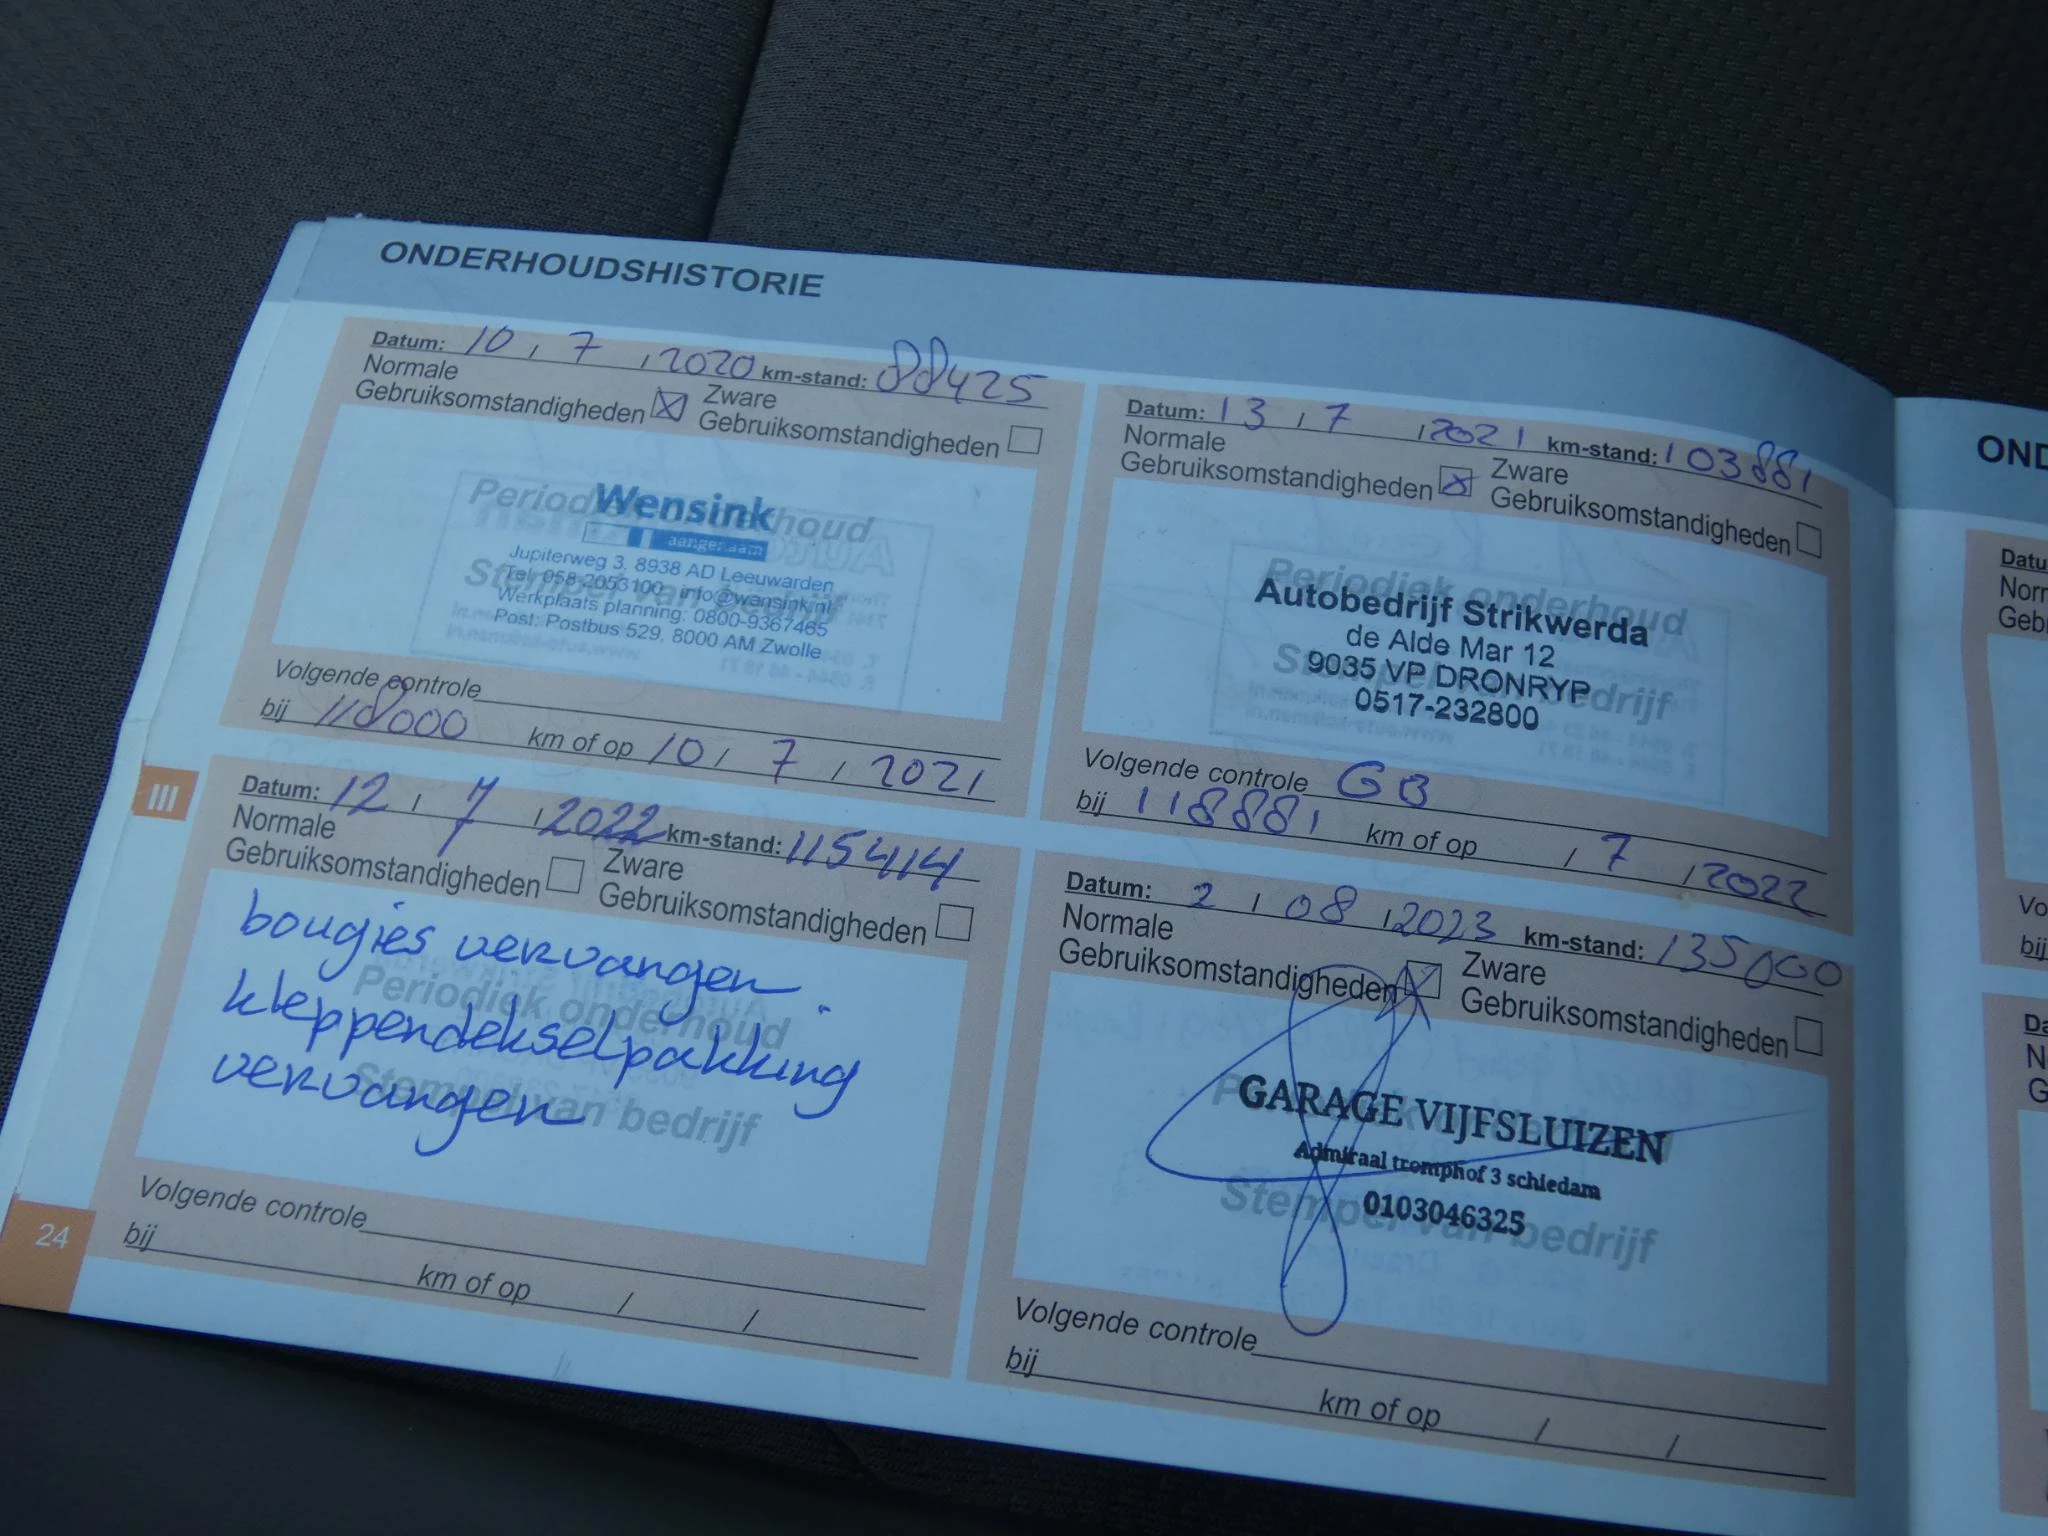 ONDERHOUDSHISTORIE
Datum: 10 / 7 / 2020 km-stand: 88425
Normale Gebruiksomstandigheden ☒ Zware Gebruiksomstandigheden ☐
Periodiek onderhoud
Stempel van bedrijf
Wensink
aangenaam
Jupiterweg 3, 8938 AD Leeuwarden
Tel. 058-2053100 info@wensink.nl
Werkplaats planning: 0800-9367465
Post: Postbus 529, 8000 AM Zwolle
Volgende controle
bij 118000 km of op 10 / 7 / 2021
Datum: 13 / 7 / 2021 km-stand: 103881
Normale Gebruiksomstandigheden ☒ Zware Gebruiksomstandigheden ☐
Periodiek onderhoud
Stempel van bedrijf
Autobedrijf Strikwerda
de Alde Mar 12
9035 VP DRONRYP
0517-232800
Volgende controle GB
bij 118881 km of op / 7 / 2022
III
Datum: 12 / 7 / 2022 km-stand: 115414
Normale Gebruiksomstandigheden ☐ Zware Gebruiksomstandigheden ☐
Periodiek onderhoud
Stempel van bedrijf
bougies vervangen.
kleppendekselpakking
vervangen
Volgende controle
bij km of op / /
Datum: 2 / 08 / 2023 km-stand: 135000
Normale Gebruiksomstandigheden ☒ Zware Gebruiksomstandigheden ☐
Stempel van bedrijf
GARAGE VIJFSLUIZEN
Admiraal tromphof 3 schiedam
0103046325
Volgende controle
bij km of op / /
24